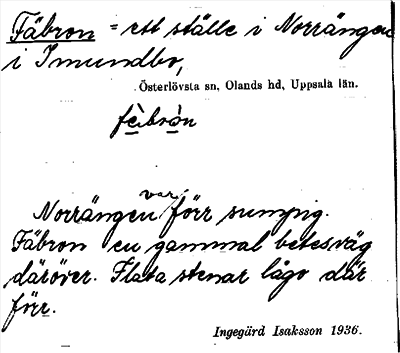 Fäbron = ett ställe i Norrängen
i Imundbo,
Österlövsta sn, Olands hd, Uppsala län.
fèbrón
Norrängen var förr sumpig.
Fäbron en gammal betesväg
däröver. Flata stenar lågo där
förr.
Ingegärd Isaksson 1936.